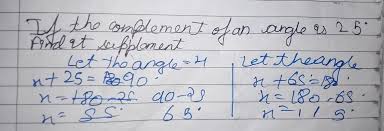 If the complement of an angle is 25°
Find it supplement
Let the angle = x
x + 25 = 90°
x = 180-25 90-25
x = 55 65°
Let the angle
x + 65 = 180
x = 180-65
x = 115°